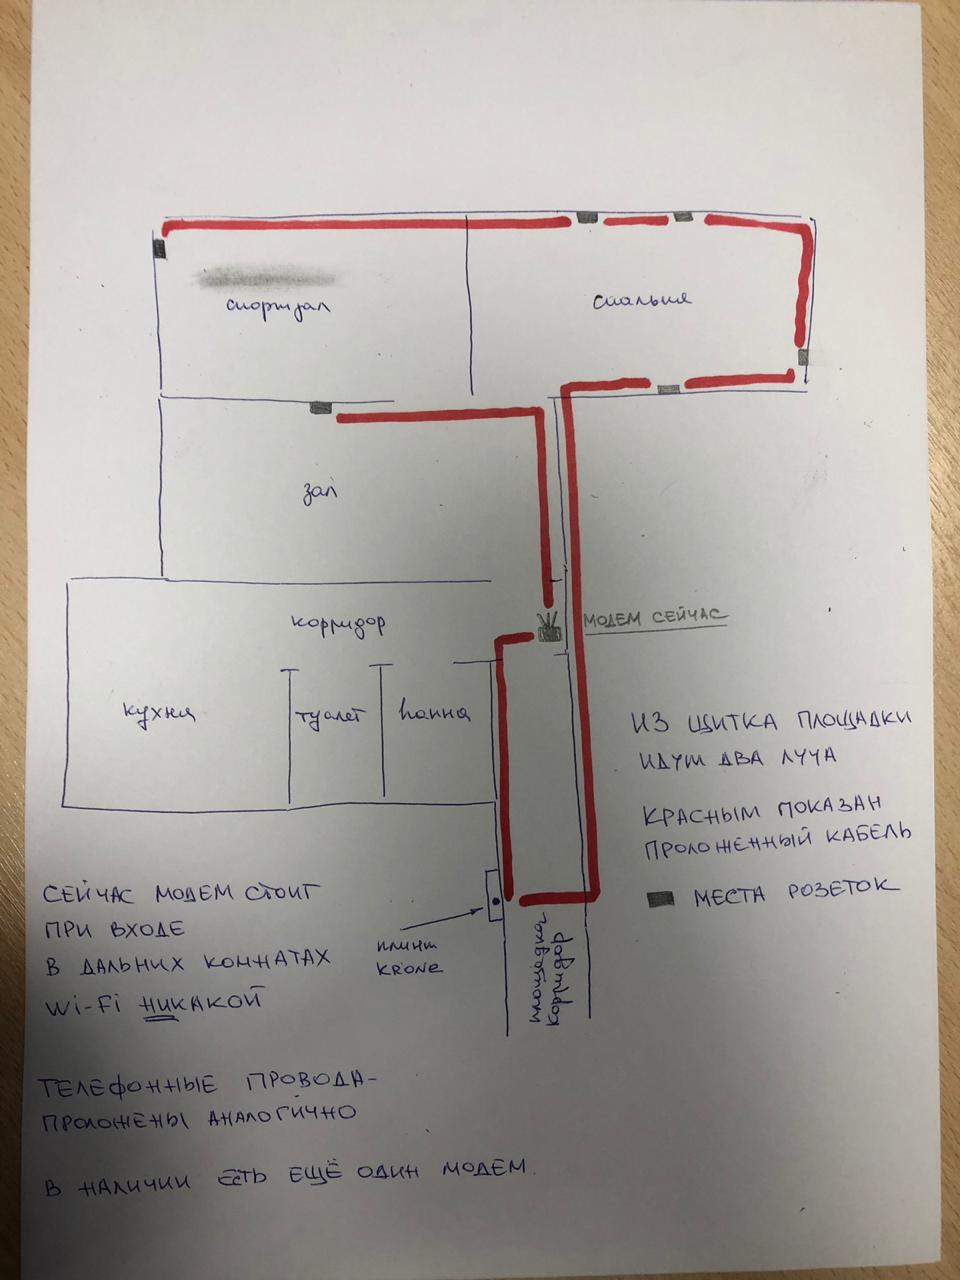 спортзал
спальня
зал
МОДЕМ СЕЙЧАС
корридор
кухня
туалет
ванна
ИЗ ЩИТКА ПЛОЩАДКИ
ИДУТ ДВА ЛУЧА
КРАСНЫМ ПОКАЗАН
ПРОЛОЖЕННЫЙ КАБЕЛЬ
МЕСТА РОЗЕТОК
СЕЙЧАС МОДЕМ СТОИТ
ПРИ ВХОДЕ
В ДАЛЬНИХ КОМНАТАХ
Wi-Fi НИКАКОЙ
плинт
KRONE
площадка
корридор
ТЕЛЕФОННЫЕ ПРОВОДА-
ПРОЛОЖЕНЫ АНАЛОГИЧНО
В НАЛИЧИИ ЕСТЬ ЕЩЁ ОДИН МОДЕМ.